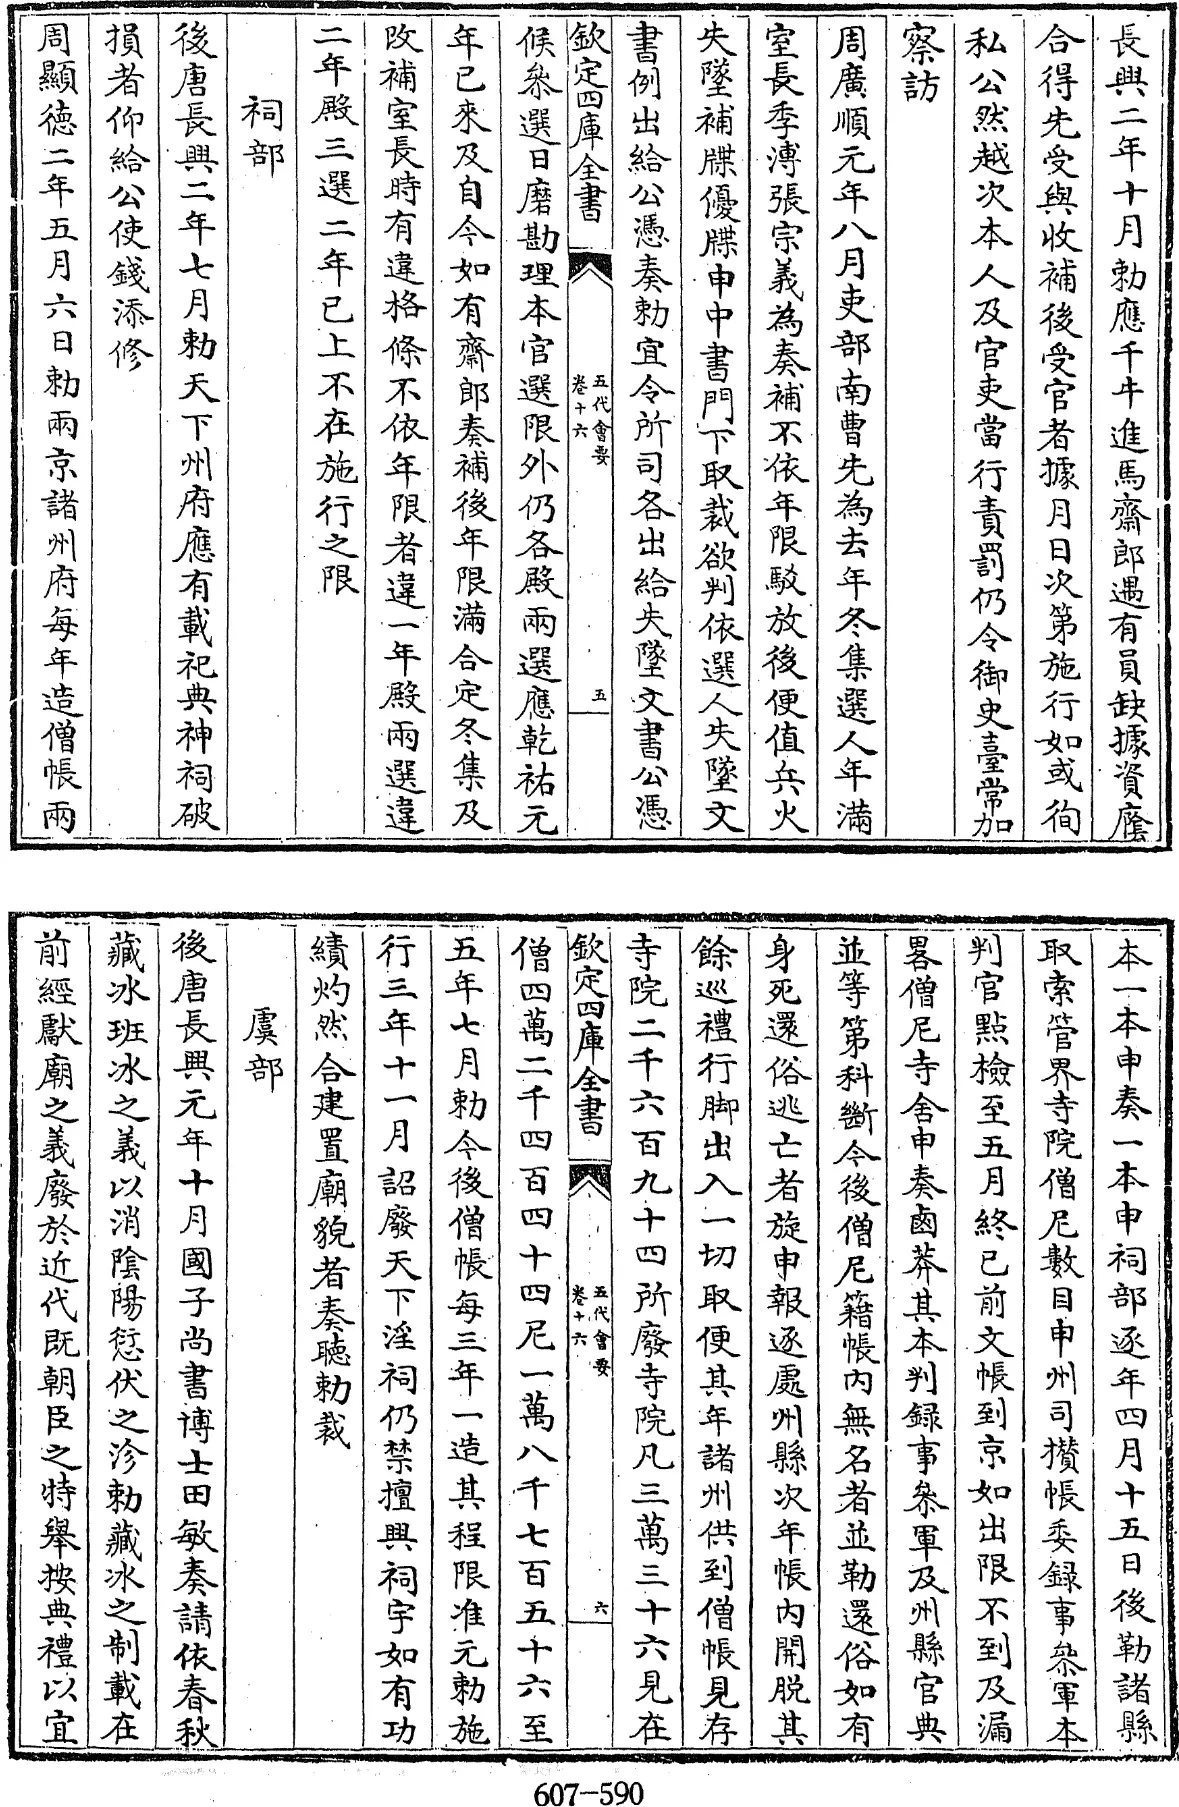 長興二年十月勅應千牛進馬齋郎遇有員缺據資廕
合得先受與收補後受官者據月日次第施行如或徇
私公然越次本人及官吏當行責罰仍令御史臺常加
察訪
周廣順元年八月吏部南曹先為去年冬集選人年滿
室長季溥張宗義為奏補不依年限駮放後便值兵火
失墜補牒優牒申中書門下取裁欲判依選人失墜文
書例出給公憑奏勅宜令所司各出給失墜文書公憑
欽定四庫全書
五代會要
卷十六
五
候叅選日磨勘理本官選限外仍各殿兩選應乾祐元
年已來及自今如有齋郎奏補後年限滿合定冬集及
改補室長時有違格條不依年限者違一年殿兩選違
二年殿三選二年已上不在施行之限
祠部
後唐長興二年七月勅天下州府應有載祀典神祠破
損者仰給公使錢添修
周顯徳二年五月六日勅兩京諸州府每年造僧帳兩
本一本申奏一本申祠部逐年四月十五日後勒諸縣
取索管界寺院僧尼數目申州司攢帳委錄事叅軍本
判官點檢至五月終已前文帳到京如出限不到及漏
畧僧尼寺舍申奏鹵莽其本判録事叅軍及州縣官典
並等第科斷今後僧尼籍帳内無名者並勒還俗如有
身死還俗逃亡者旋申報逐處州縣次年帳内開脱其
餘巡禮行脚出入一切取便其年諸州供到僧帳見存
寺院二千六百九十四所廢寺院凡三萬三十六見在
欽定四庫全書
五代會要
卷十六
六
僧四萬二千四百四十四尼一萬八千七百五十六至
五年七月勅今後僧帳每三年一造其程限准元勅施
行三年十一月詔廢天下淫祠仍禁擅興祠宇如有功
績灼然合建置廟貌者奏聽勅裁
虞部
後唐長興元年十月國子尚書博士田敏奏請依春秋
藏冰班冰之義以消陰陽愆伏之沴勅藏冰之制載在
前經獻廟之義廢於近代既朝臣之特舉按典禮以宜
607-590